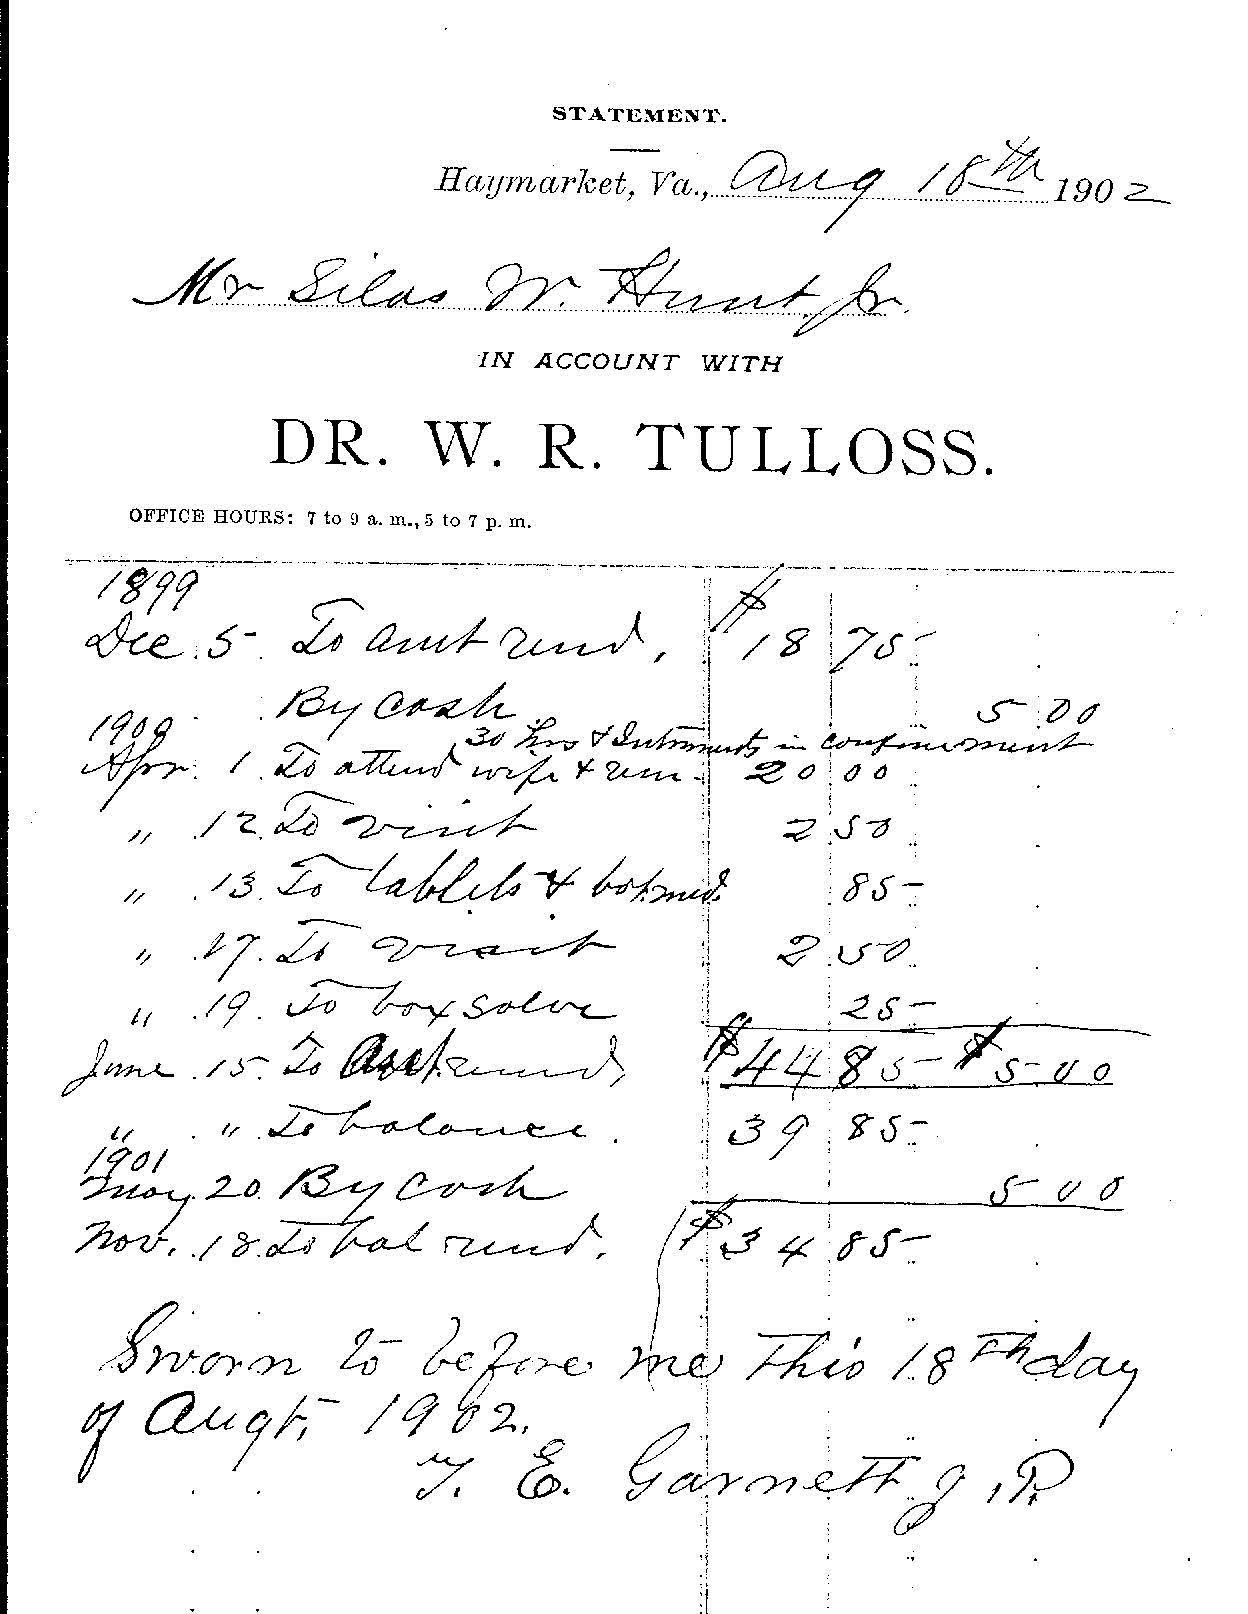 STATEMENT.
Haymarket, Va., Aug 18th 1902
Mr Silas W. Hunt Jr.
IN ACCOUNT WITH
DR. W. R. TULLOSS.
OFFICE HOURS: 7 to 9 a. m., 5 to 7 p. m.
1899
Dec. 5. To amt rend, $18 75
By cash 5 00
1900
30 hrs & Instruments in confinement
Apr. 1. To attend wife & rem. 20 00
" 12. To visit 2 50
" 13. To tablets & bot. med. 85
" 17. To visit 2 50
" 19. To box salve 25
June 15. To Amt. rend, $44 85 $5 00
" " To balance. 39 85
1901
May 20. By cash 5 00
Nov. 18. To bal rend. $34 85
Sworn to before me this 18th day
of Augt, 1902.
T. E. Garnett J. P.